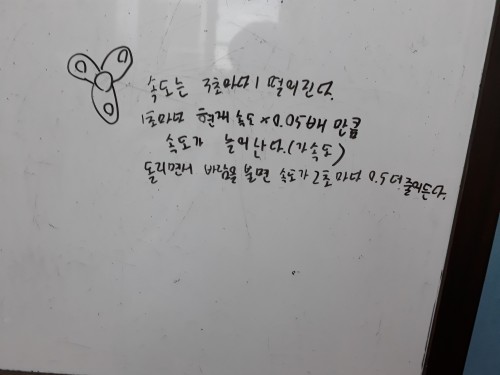 속도는 3초마다 1 떨어진다.
1초마다 현재 속도 × 0.05배 만큼
속도가 늘어난다.(가속도)
돌리면서 바람을 불면 속도가 2초마다 0.5 더 줄어든다.